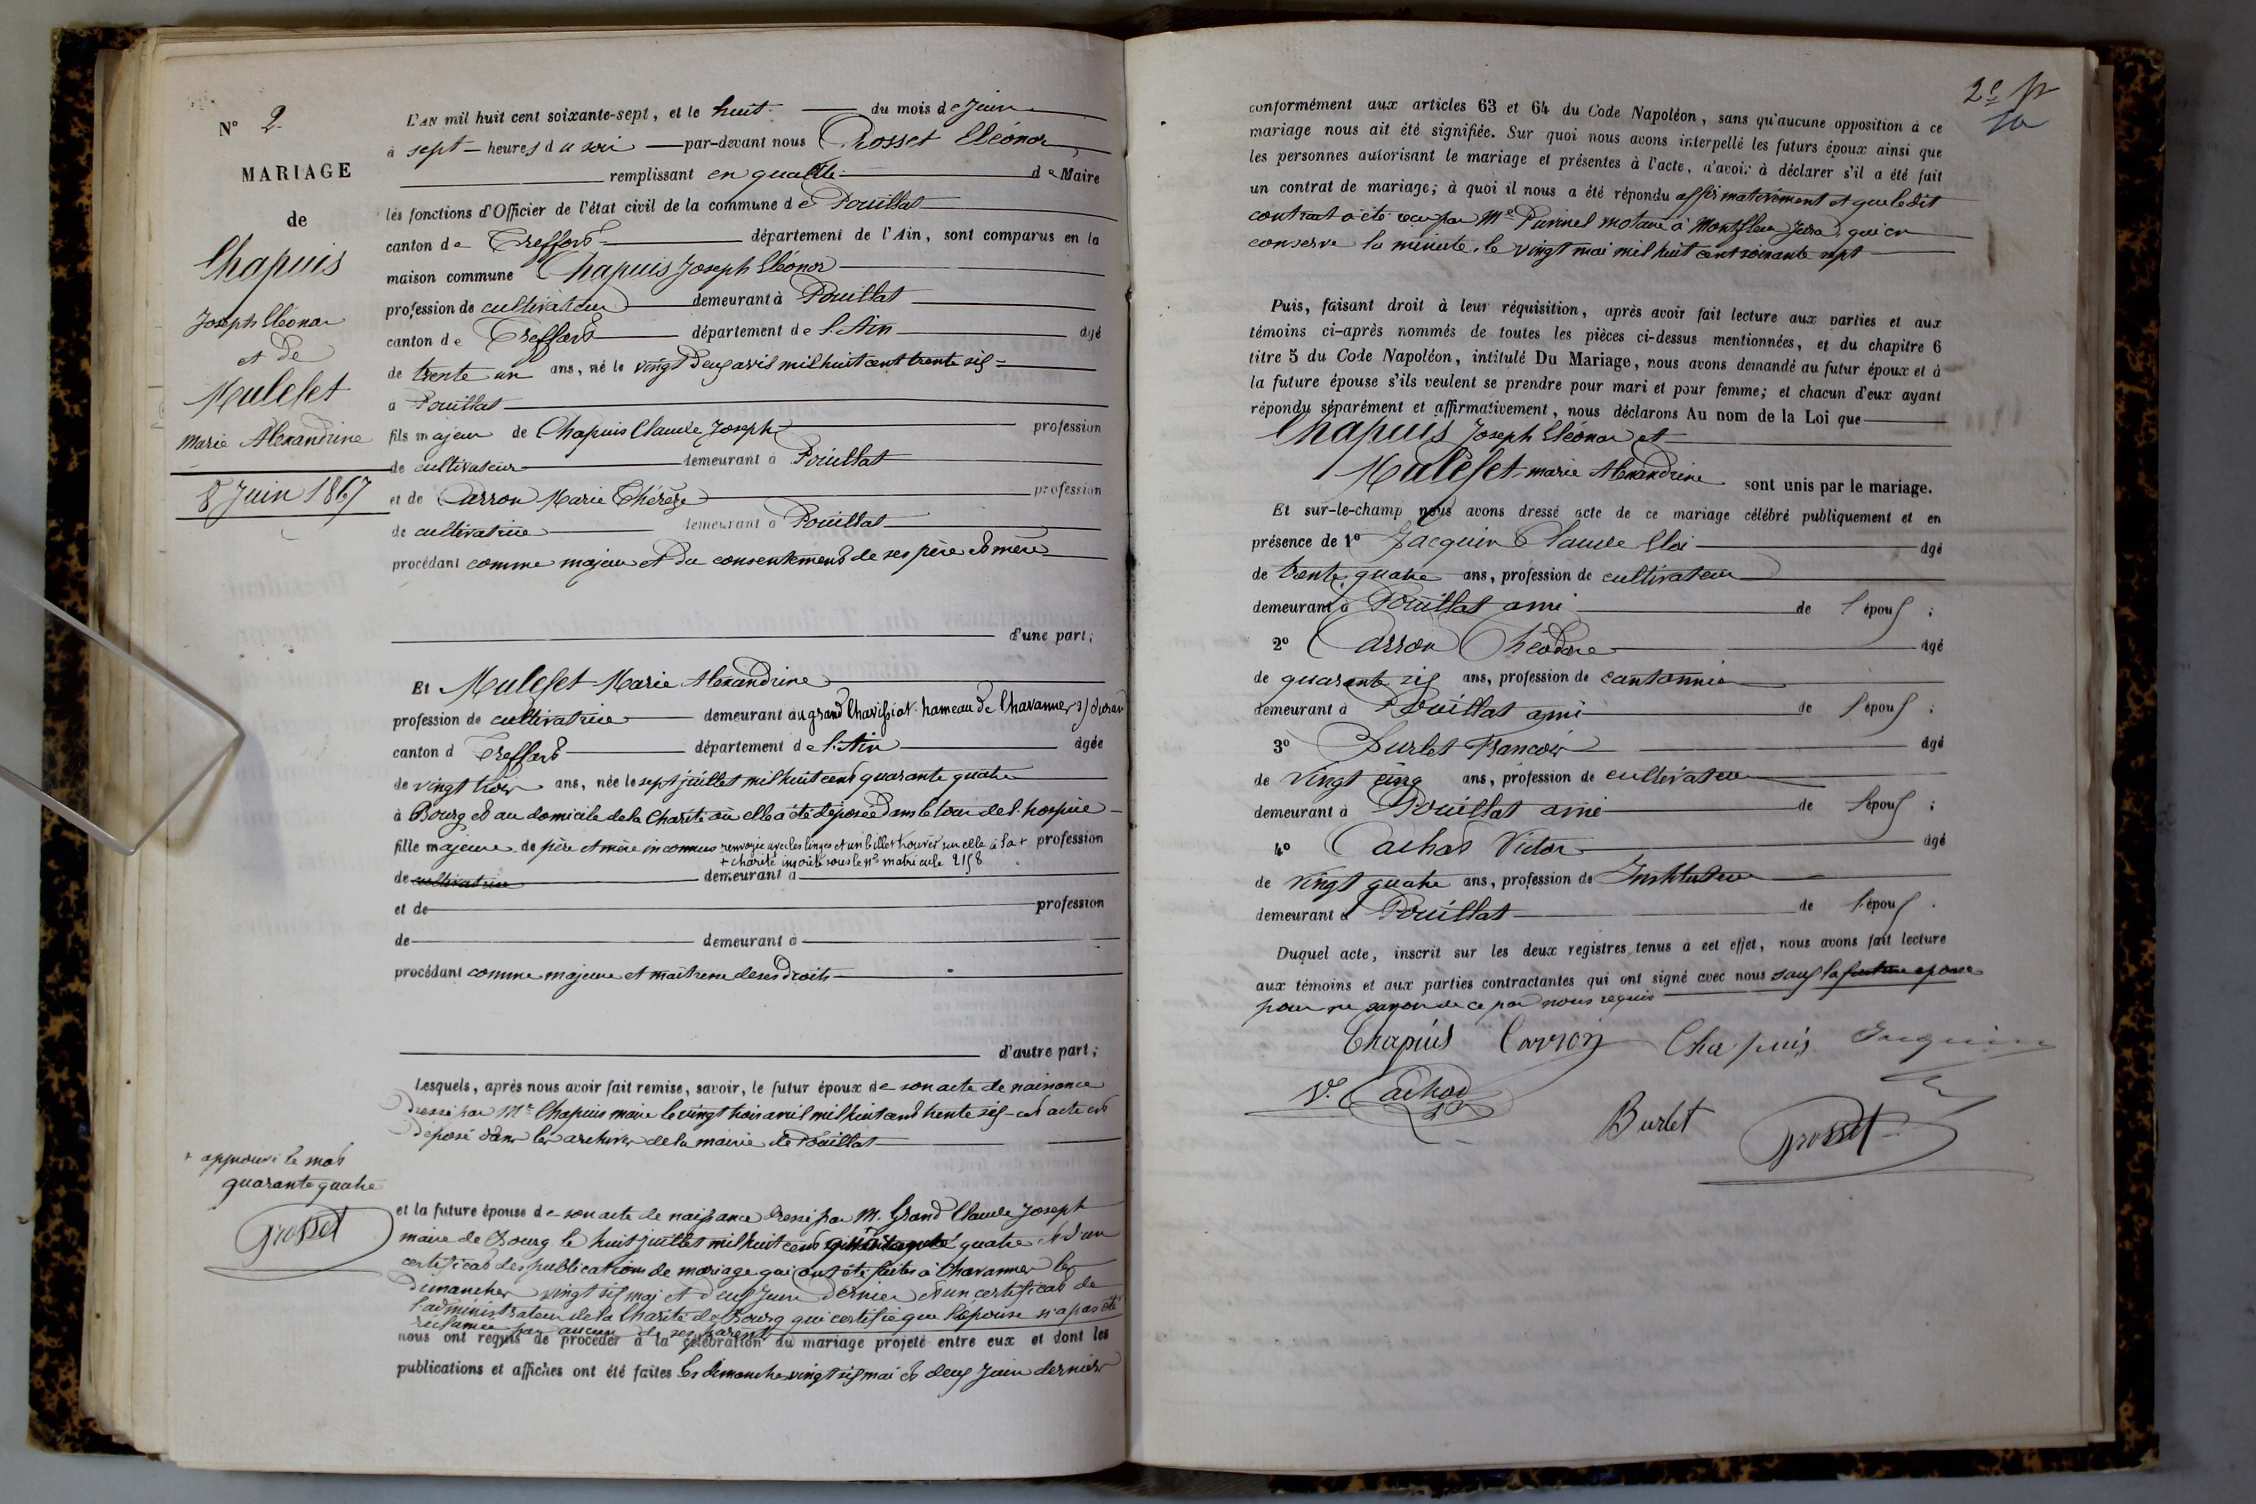 N° 2
MARIAGE
de
Chapuis
Joseph Eléonor
et de
Mulefet
Marie Alexandrine
8 Juin 1867
L'AN mil huit cent soixante-sept, et le huit du mois de Juin
à sept heures du soir par-devant nous Grosset Eléonor
remplissant en qualité de Maire
les fonctions d'Officier de l'état civil de la commune de Pouillat
canton de Treffort département de l'Ain, sont comparus en la
maison commune Chapuis Joseph Eléonor
profession de cultivateur demeurant à Pouillat
canton de Treffort département de l'Ain âgé
de trente un ans, né le vingt deux avril mil huit cent trente six
à Pouillat
fils majeur de Chapuis Claude Joseph profession
de cultivateur demeurant à Pouillat
et de Carron Marie Thérèze profession
de cultivatrice demeurant à Pouillat
procédant comme majeur et du consentement de ses père et mère
d'une part;
Et Mulefet Marie Alexandrine
profession de cultivatrice demeurant au grand Chavissiat hameau de Chavannes s/ Suran
canton d Treffort département de l'Ain âgée
de vingt trois ans, née le sept juillet mil huit cent quarante quatre
à Bourg et au domicile de la Charité où elle a été déposée dans le tour de l'hospice
fille majeure de père et mère inconnus renvoyée avec les linges et un billet trouvés sur elle à la + profession
+ charité inscrite sous le n° matricule 2158
de cultivatrice demeurant à
et de profession
de demeurant à
procédant comme majeure et maîtresse de ses droits
d'autre part;
Lesquels, après nous avoir fait remise, savoir, le futur époux de son acte de naissance
dressé par Mr Chapuis maire le vingt trois avril mil huit cent trente six cet acte est
déposé dans les archives de la mairie de Pouillat
+ approuvé le mot
quarante quatre
Grosset
et la future épouse de son acte de naissance dressé par M. Grand Claude Joseph
maire de Bourg le huit juillet mil huit cent quarante quatre et d'un
certificat des publications de mariage qui ont été faites à Chavannes les
dimanches vingt six mai et deux Juin dernier et un certificat de
l'administrateur de la Charité de Bourg qui certifie que l'épouse n'a pas été
réclamée par aucun de ses parents
nous ont requis de procéder à la célébration du mariage projeté entre eux et dont les
publications et affiches ont été faites les dimanches vingt six mai et deux Juin dernier
2e
conformément aux articles 63 et 64 du Code Napoléon, sans qu'aucune opposition à ce
mariage nous ait été signifiée. Sur quoi nous avons interpellé les futurs époux ainsi que
les personnes autorisant le mariage et présentes à l'acte, d'avoir à déclarer s'il a été fait
un contrat de mariage; à quoi il nous a été répondu affirmativement et que le dit
contrat a été reçu par Me notaire à Montfleur Jura, qui en
conserve la minute, le vingt mai mil huit cent soixante sept
Puis, faisant droit à leur réquisition, après avoir fait lecture aux parties et aux
témoins ci-après nommés de toutes les pièces ci-dessus mentionnées, et du chapitre 6
titre 5 du Code Napoléon, intitulé Du Mariage, nous avons demandé au futur époux et à
la future épouse s'ils veulent se prendre pour mari et pour femme; et chacun d'eux ayant
répondu séparément et affirmativement, nous déclarons Au nom de la Loi que
Chapuis Joseph Eléonor et
Mulefet marie Alexandrine sont unis par le mariage.
Et sur-le-champ nous avons dressé acte de ce mariage célébré publiquement et en
présence de 1° Jacquin Claude Eloi âgé
de trente quatre ans, profession de cultivateur
demeurant à Pouillat ami de l'époux;
2° Carron Théodore âgé
de quarante six ans, profession de cantonnier
demeurant à Pouillat ami de l'époux;
3° Burlet François âgé
de vingt cinq ans, profession de cultivateur
demeurant à Pouillat ami de l'époux;
4° Cachod Victor âgé
de vingt quatre ans, profession de Instituteur
demeurant à Pouillat de l'époux.
Duquel acte, inscrit sur les deux registres tenus à cet effet, nous avons fait lecture
aux témoins et aux parties contractantes qui ont signé avec nous sauf la future épouse
pour ne savoir de ce par nous requis
Chapuis Carron Chapuis Jacquin
V. Cachod
Burlet
Grosset